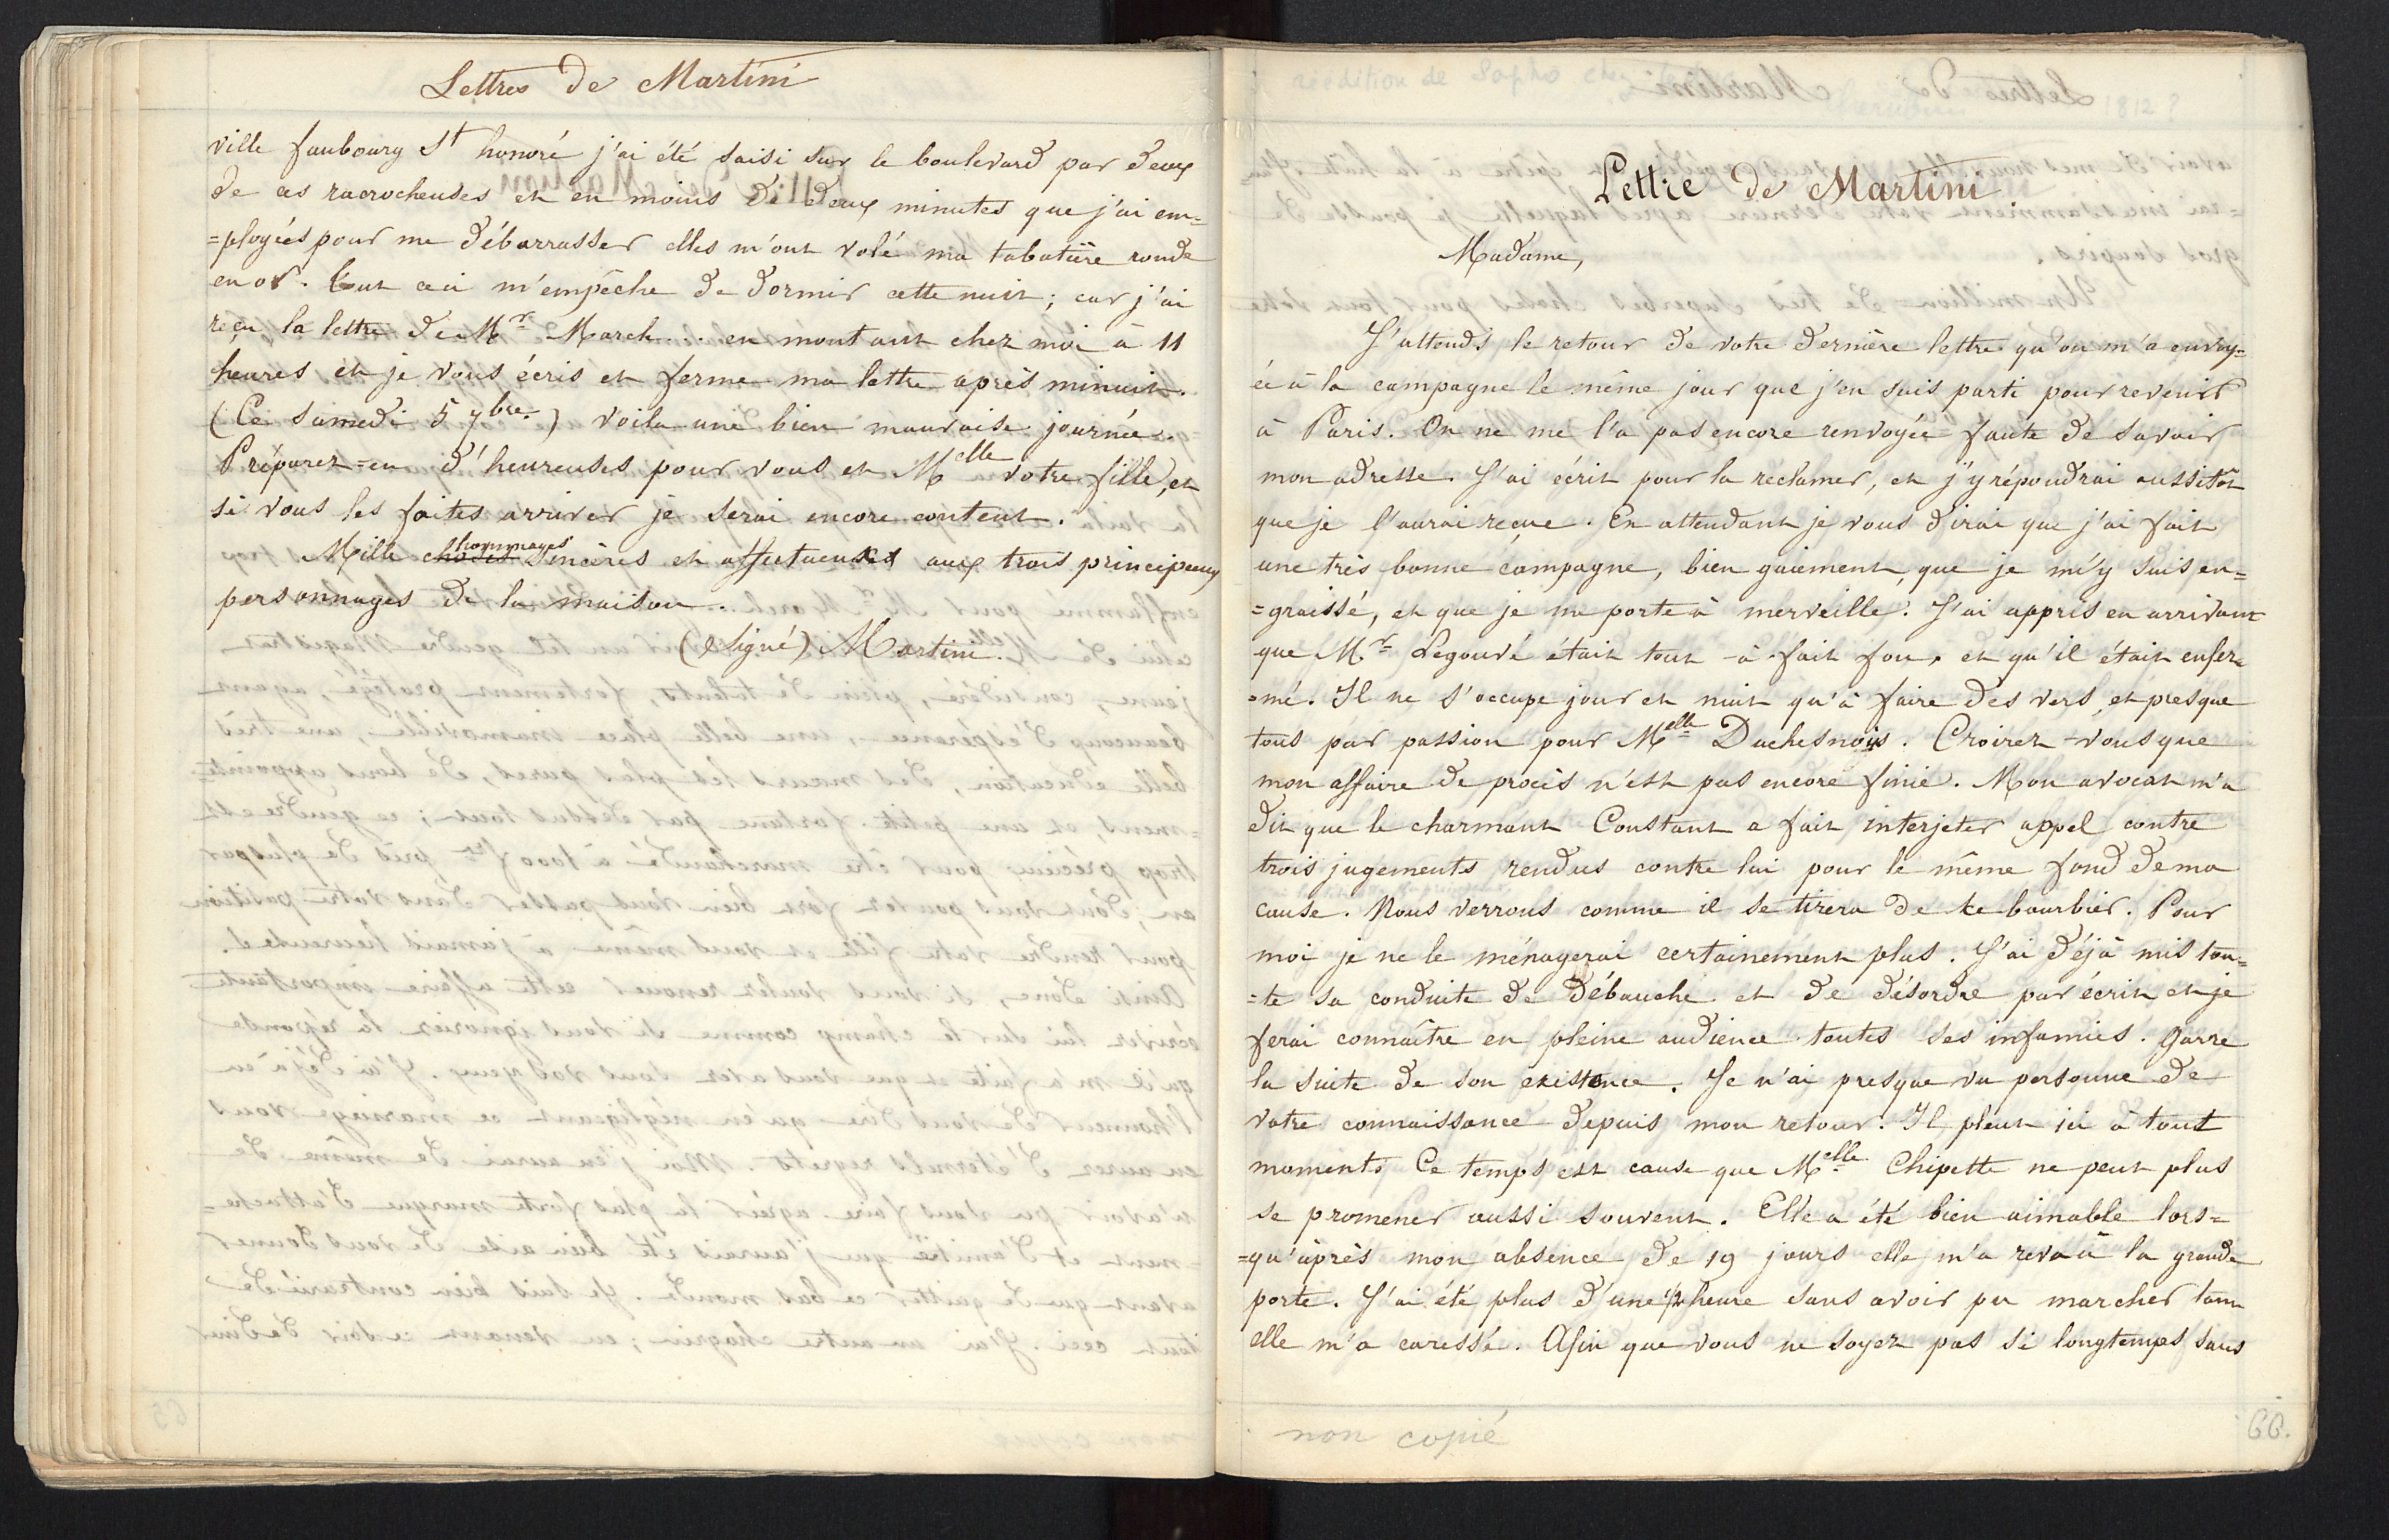 Lettres de Martini
ville faubourg St honoré j'ai été saisi sur le boulevard par deux
de ces racrocheuses et en moins de deux minutes que j'ai em=
=ployées pour me débarrasser elles m'ont volé ma tabatière ronde
en or. Tout ceci m'empêche de dormir cette nuit; car j'ai
reçu la lettre de Mr March... en montant chez moi à 11
heures et je vous écris et ferme ma lettre après minuit.
(Ce samedi 5 7bre) voila une bien mauvaise journée.
Préparez=en d'heureuses pour vous et Melle votre fille, et
si vous les faites arriver je serai encore content.
Mille choses hommages sincères et affectueuses aux trois principaux
personnages de la maison.
(Signé) Martini.
réédition de Sapho chez
1812?
Lettre de Martini
Madame,
J'attends le retour de votre dernière lettre qu'on m'a envoy=
ée à la campagne le même jour que j'en suis parti pour revenir
à Paris. On ne me l'a pas encore renvoyée faute de savoir
mon adresse. J'ai écrit pour la réclamer, et j'y répondrai aussitôt
que je l'aurai reçue. En attendant je vous dirai que j'ai fait
une très bonne campagne, bien gaiement, que je m'y suis en=
=graissé, et que je me porte à merveille. J'ai appris en arrivant
que Mr Légouvé était tout-à-fait fou, et qu'il était enfer=
=mé. Il ne s'occupe jour et nuit qu'à faire des vers, et presque
tous par passion pour Melle Duchesnois. Croirez-vous que
mon affaire de procès n'est pas encore finie. Mon avocat m'a
dit que le charmant Constant a fait interjeter appel contre
trois jugements rendus contre lui pour le même fond de ma
cause. Nous verrons comme il se tirera de ce bourbier. Pour
moi je ne le ménagerai certainement plus. J'ai déjà mis tou=
=te sa conduite de débauche et de désordre par écrit et je
ferai connaître en pleine audience toutes ses infamies. Garre
la suite de son existence. Je n'ai presque vu personne de
votre connaissance depuis mon retour. Il pleut ici à tout
moment. Ce temps est cause que Melle Chipette ne peut plus
se promener aussi souvent. Elle a été bien aimable lors=
=qu'après mon absence de 19 jours elle m'a revu à la grande
porte. J'ai été plus d'une 1/2 heure sans avoir pu marcher tant
elle m'a caressé. Afin que vous ne soyez pas si longtemps sans
non copié
66.